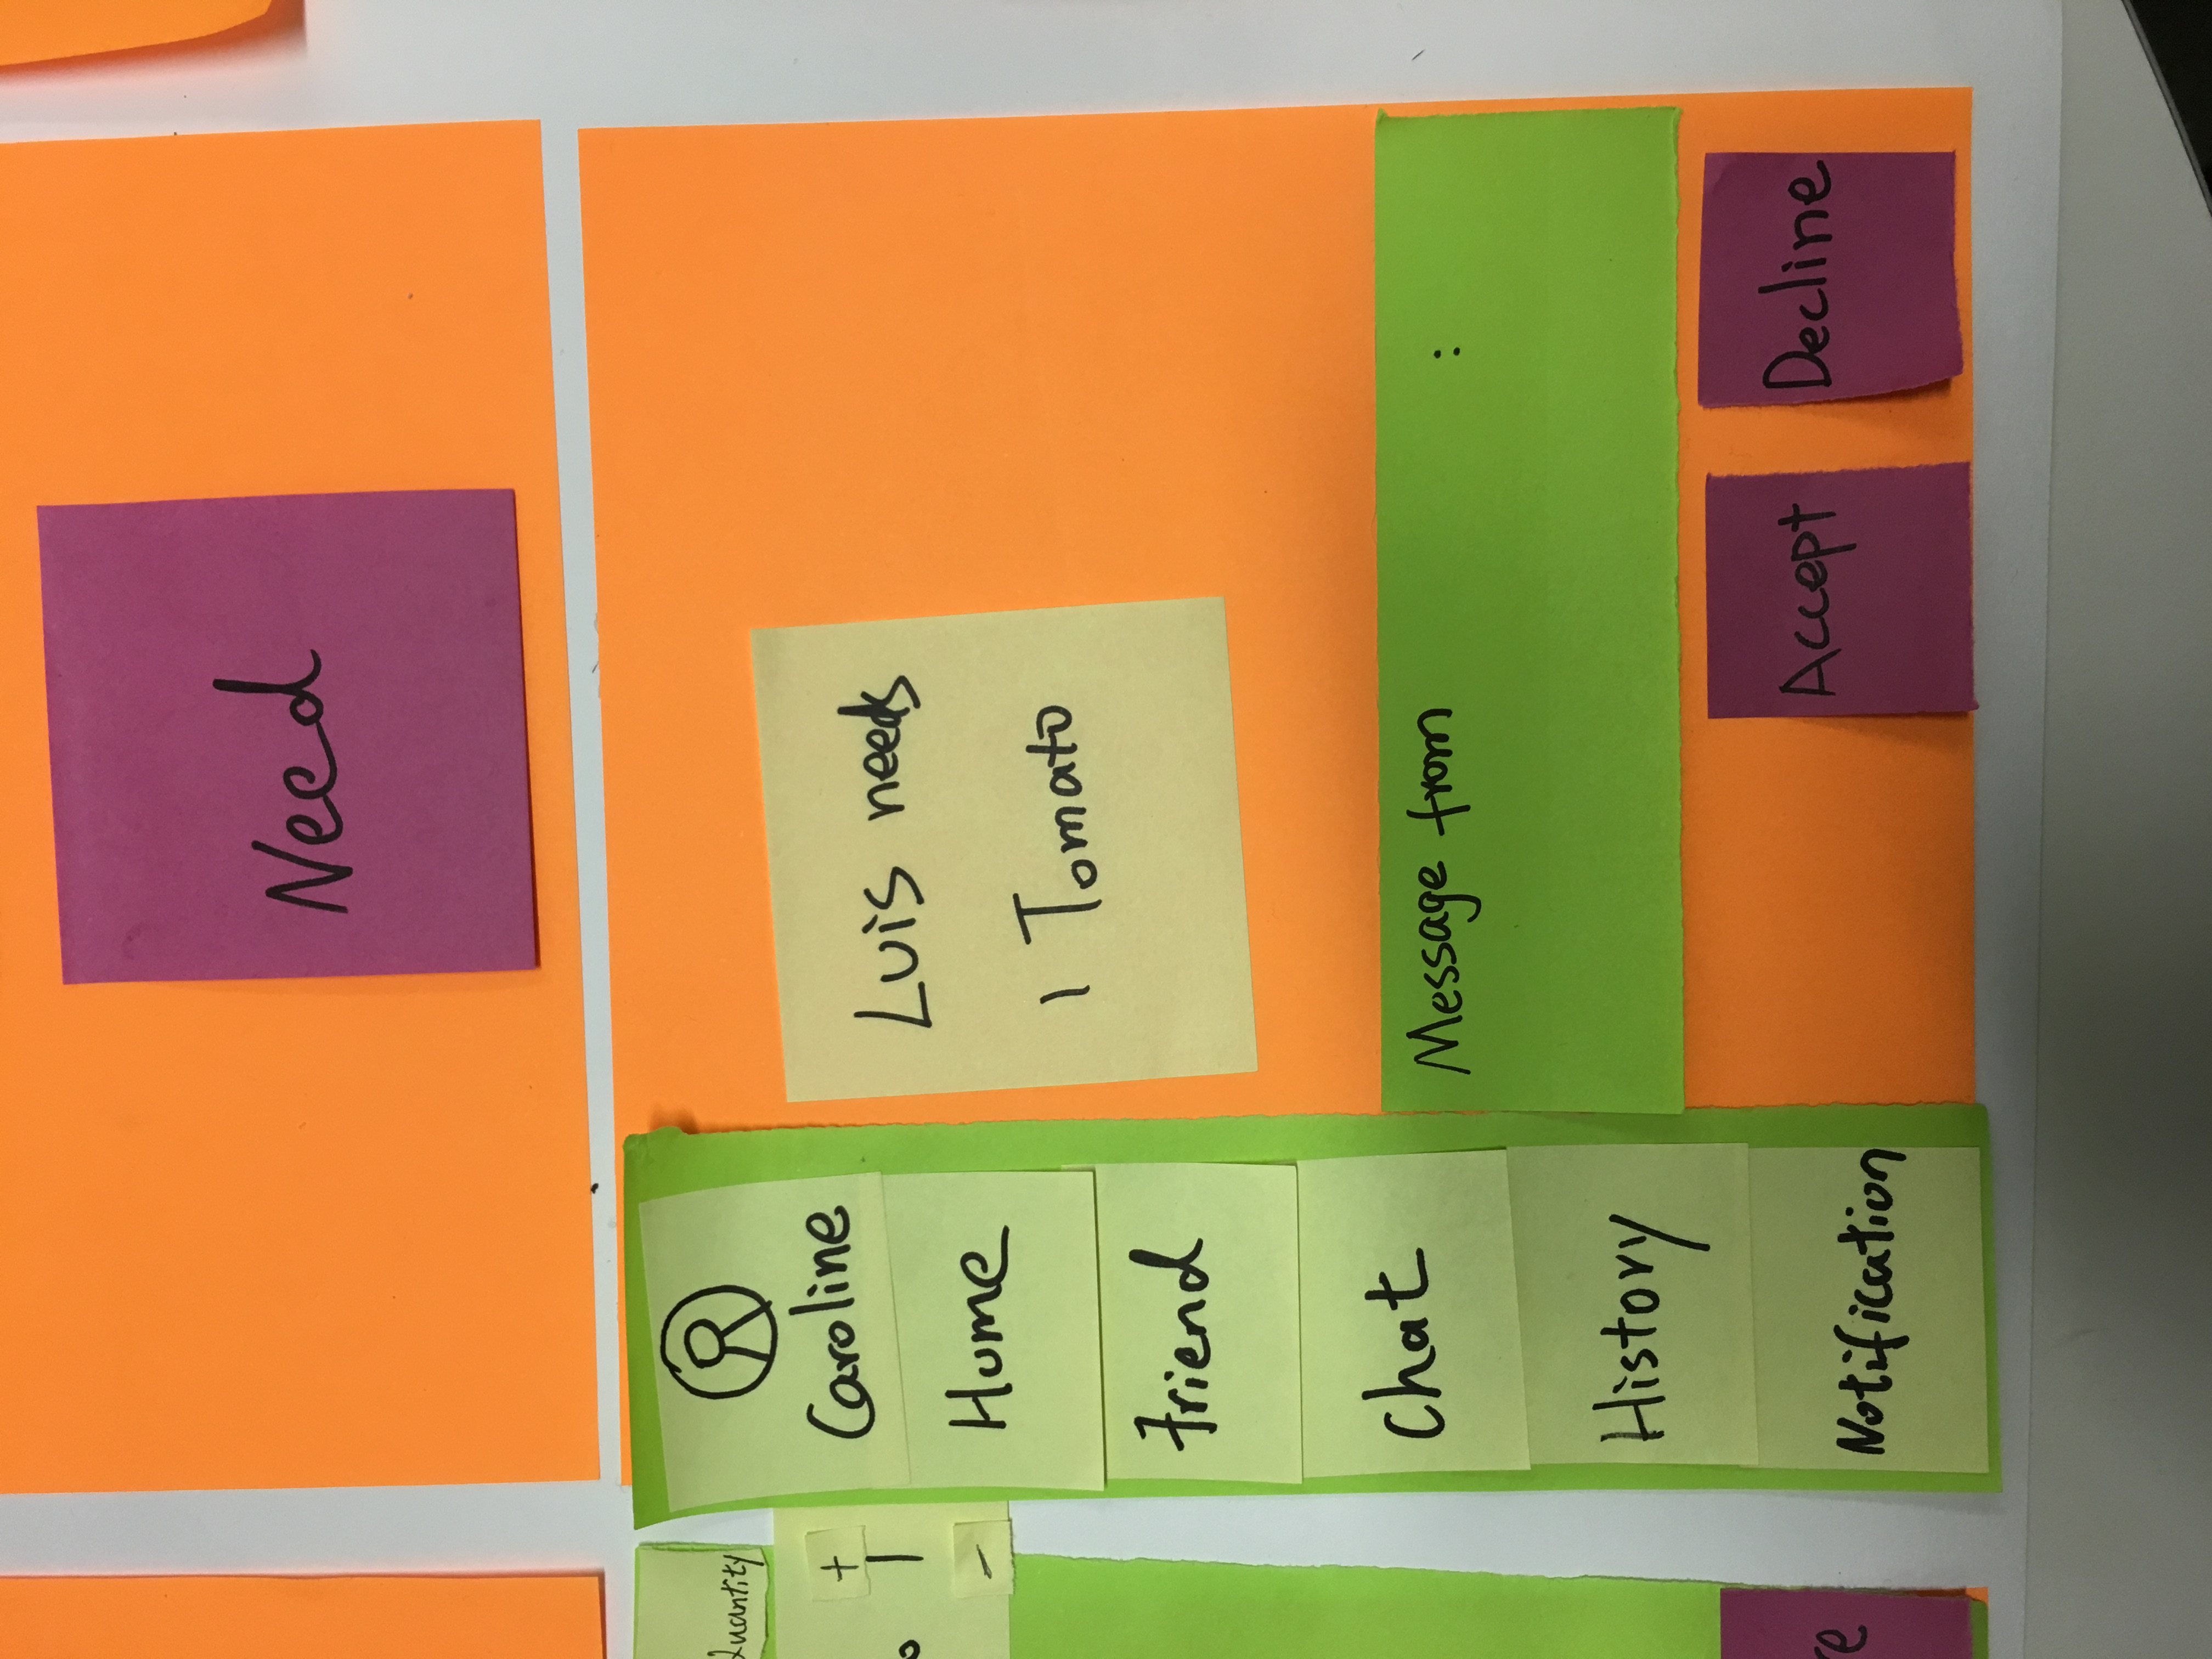 Need
Quantity
+
1
-
Caroline
Home
Friend
Chat
History
Notification
Luis needs
1 Tomato
Message from :
Accept
Decline